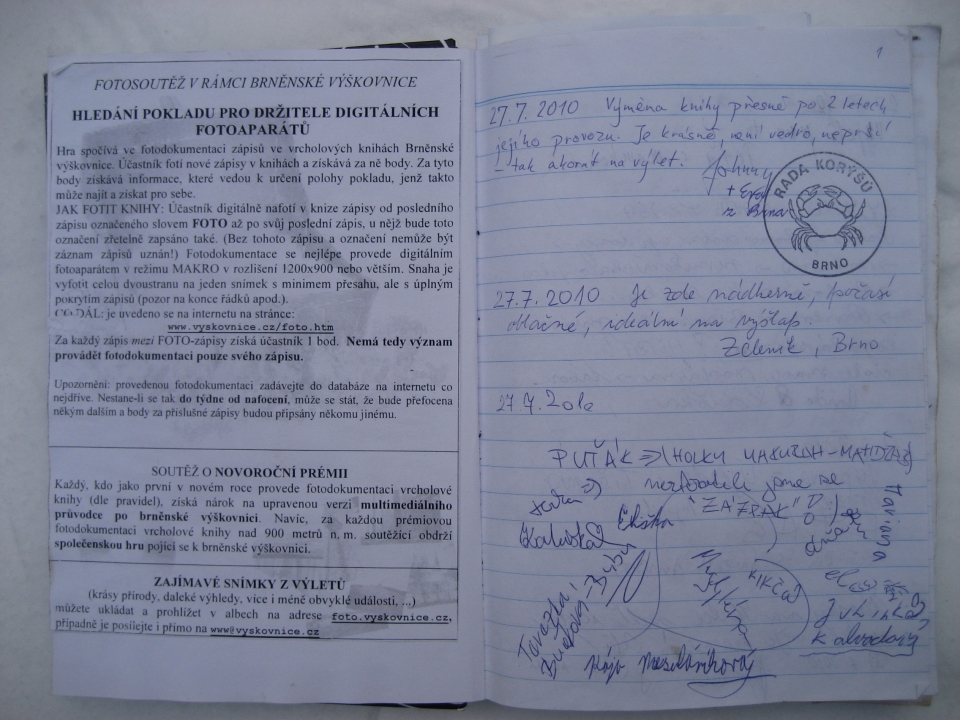 FOTOSOUTĚŽ V RÁMCI BRNĚNSKÉ VÝŠKOVNICE
HLEDÁNÍ POKLADU PRO DRŽITELE DIGITÁLNÍCH
FOTOAPARÁTŮ
Hra spočívá ve fotodokumentaci zápisů ve vrcholových knihách Brněnské
výškovnice. Účastník fotí nové zápisy v knihách a získává za ně body. Za tyto
body získává informace, které vedou k určení polohy pokladu, jenž takto
může najít a získat pro sebe.
JAK FOTIT KNIHY: Účastník digitálně nafotí v knize zápisy od posledního
zápisu označeného slovem FOTO až po svůj poslední zápis, u nějž bude toto
označení zřetelně zapsáno také. (Bez tohoto zápisu a označení nemůže být
záznam zápisů uznán!) Fotodokumentace se nejlépe provede digitálním
fotoaparátem v režimu MAKRO v rozlišení 1200x900 nebo větším. Snaha je
vyfotit celou dvoustranu na jeden snímek s minimem přesahu, ale s úplným
pokrytím zápisů (pozor na konce řádků apod.).
CO DÁL: je uvedeno se na internetu na stránce:
www.vyskovnice.cz/foto.htm
Za každý zápis mezi FOTO-zápisy získá účastník 1 bod. Nemá tedy význam
provádět fotodokumentaci pouze svého zápisu.
Upozornění: provedenou fotodokumentaci zadávejte do databáze na internetu co
nejdříve. Nestane-li se tak do týdne od nafocení, může se stát, že bude přefocena
někým dalším a body za příslušné zápisy budou připsány někomu jinému.
SOUTĚŽ O NOVOROČNÍ PRÉMII
Každý, kdo jako první v novém roce provede fotodokumentaci vrcholové
knihy (dle pravidel), získá nárok na upravenou verzi multimediálního
průvodce po brněnské výškovnici. Navíc, za každou prémiovou
fotodokumentaci vrcholové knihy nad 900 metrů n. m. soutěžící obdrží
společenskou hru pojící se k brněnské výškovnici.
ZAJÍMAVÉ SNÍMKY Z VÝLETŮ
(krásy přírody, daleké výhledy, více i méně obvyklé události, ...)
můžete ukládat a prohlížet v albech na adrese foto.vyskovnice.cz,
případně je posílejte i přímo na www@vyskovnice.cz
1
27.7. 2010 Výměna knihy přesně po 2 letech
jejího provozu. Je krásně, není vedro, neprší
– tak akorát na výlet. Johnny
+ Eva
z Brna
RADA KORÝŠŮ
BRNO
27.7. 2010 Je zde nádherně, počasí
oblačné, ideální na výšlap.
Zdeník, Brno
27.7. 2010
PUŤÁK => HOLKY
jsme se
"ZÁZRAK"
Eliška
Mariana
KIKČA